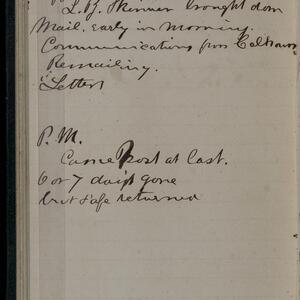 L. H. Skinner brought down
Mail. early in morning.
Communications from Calhoun
Remailing.
Letters
P. M.
Came Post at Last.
6 or 7 days gone
but safe returned